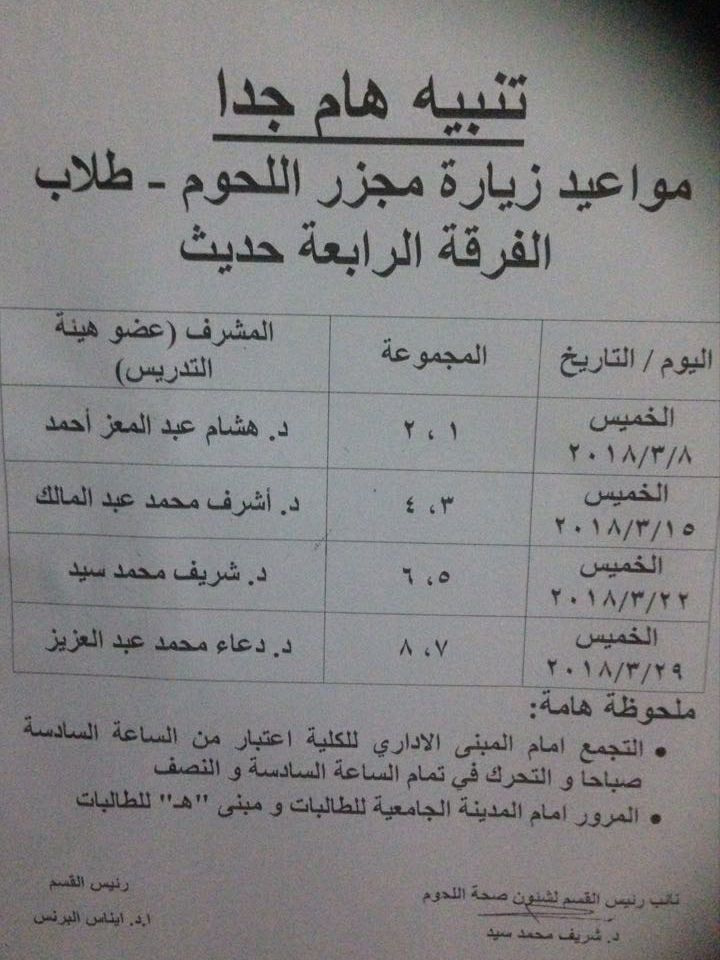 تنبيه هام جدا
مواعيد زيارة مجزر اللحوم - طلاب
الفرقة الرابعة حديث
اليوم / التاريخ
المجموعة
المشرف (عضو هيئة
التدريس)
الخميس
٢٠١٨/٣/٨
١ ، ٢
د. هشام عبد المعز أحمد
الخميس
٢٠١٨/٣/١٥
٣، ٤
د. أشرف محمد عبد المالك
الخميس
٢٠١٨/٣/٢٢
٥، ٦
د. شريف محمد سيد
الخميس
٢٠١٨/٣/٢٩
٧، ٨
د. دعاء محمد عبد العزيز
ملحوظة هامة:
• التجمع امام المبنى الاداري للكلية اعتبار من الساعة السادسة
صباحا و التحرك في تمام الساعة السادسة و النصف
• المرور امام المدينة الجامعية للطالبات و مبنى "هـ" للطالبات
نائب رئيس القسم لشئون صحة اللحوم
د. شريف محمد سيد
رئيس القسم
ا.د. ايناس البرنس